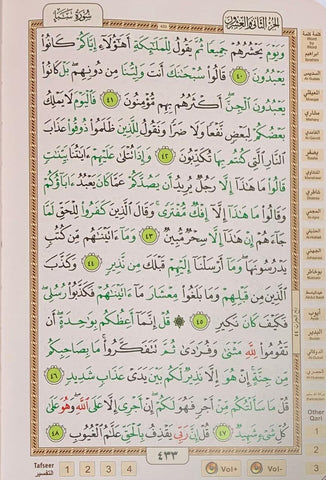 الجزء الثاني والعشرون
سورة سبإ
وَيَوْمَ يَحْشُرُهُمْ جَمِيعًا ثُمَّ يَقُولُ لِلْمَلَٰٓئِكَةِ أَهَٰٓؤُلَآءِ إِيَّاكُمْ كَانُوا۟
يَعْبُدُونَ ٤٠ قَالُوا۟ سُبْحَٰنَكَ أَنتَ وَلِيُّنَا مِن دُونِهِم بَلْ كَانُوا۟
يَعْبُدُونَ ٱلْجِنَّ أَكْثَرُهُم بِهِم مُّؤْمِنُونَ ٤١ فَٱلْيَوْمَ لَا يَمْلِكُ
بَعْضُكُمْ لِبَعْضٍ نَّفْعًا وَلَا ضَرًّا وَنَقُولُ لِلَّذِينَ ظَلَمُوا۟ ذُوقُوا۟ عَذَابَ
ٱلنَّارِ ٱلَّتِى كُنتُم بِهَا تُكَذِّبُونَ ٤٢ وَإِذَا تُتْلَىٰ عَلَيْهِمْ ءَايَٰتُنَا بَيِّنَٰتٍ
قَالُوا۟ مَا هَٰذَآ إِلَّا رَجُلٌ يُرِيدُ أَن يَصُدَّكُمْ عَمَّا كَانَ يَعْبُدُ ءَابَآؤُكُمْ
وَقَالُوا۟ مَا هَٰذَآ إِلَّآ إِفْكٌ مُّفْتَرًى وَقَالَ ٱلَّذِينَ كَفَرُوا۟ لِلْحَقِّ لَمَّا
جَآءَهُمْ إِنْ هَٰذَآ إِلَّا سِحْرٌ مُّبِينٌ ٤٣ وَمَآ ءَاتَيْنَٰهُم مِّن كُتُبٍ
يَدْرُسُونَهَا وَمَآ أَرْسَلْنَآ إِلَيْهِمْ قَبْلَكَ مِن نَّذِيرٍ ٤٤ وَكَذَّبَ
ٱلَّذِينَ مِن قَبْلِهِمْ وَمَا بَلَغُوا۟ مِعْشَارَ مَآ ءَاتَيْنَٰهُمْ فَكَذَّبُوا۟ رُسُلِى
فَكَيْفَ كَانَ نَكِيرِ ٤٥ ۞ قُلْ إِنَّمَآ أَعِظُكُم بِوَٰحِدَةٍ أَن
تَقُومُوا۟ لِلَّهِ مَثْنَىٰ وَفُرَٰدَىٰ ثُمَّ تَتَفَكَّرُوا۟ مَا بِصَاحِبِكُم
مِّن جِنَّةٍ إِنْ هُوَ إِلَّا نَذِيرٌ لَّكُم بَيْنَ يَدَىْ عَذَابٍ شَدِيدٍ ٤٦
قُلْ مَا سَأَلْتُكُم مِّنْ أَجْرٍ فَهُوَ لَكُمْ إِنْ أَجْرِىَ إِلَّا عَلَى ٱللَّهِ وَهُوَ عَلَىٰ
كُلِّ شَىْءٍ شَهِيدٌ ٤٧ قُلْ إِنَّ رَبِّى يَقْذِفُ بِٱلْحَقِّ عَلَّٰمُ ٱلْغُيُوبِ ٤٨
٤٣٣
Tafseer
التفسير
1 2 3 4
Vol+
Vol-
Other
Qari
1
2
3